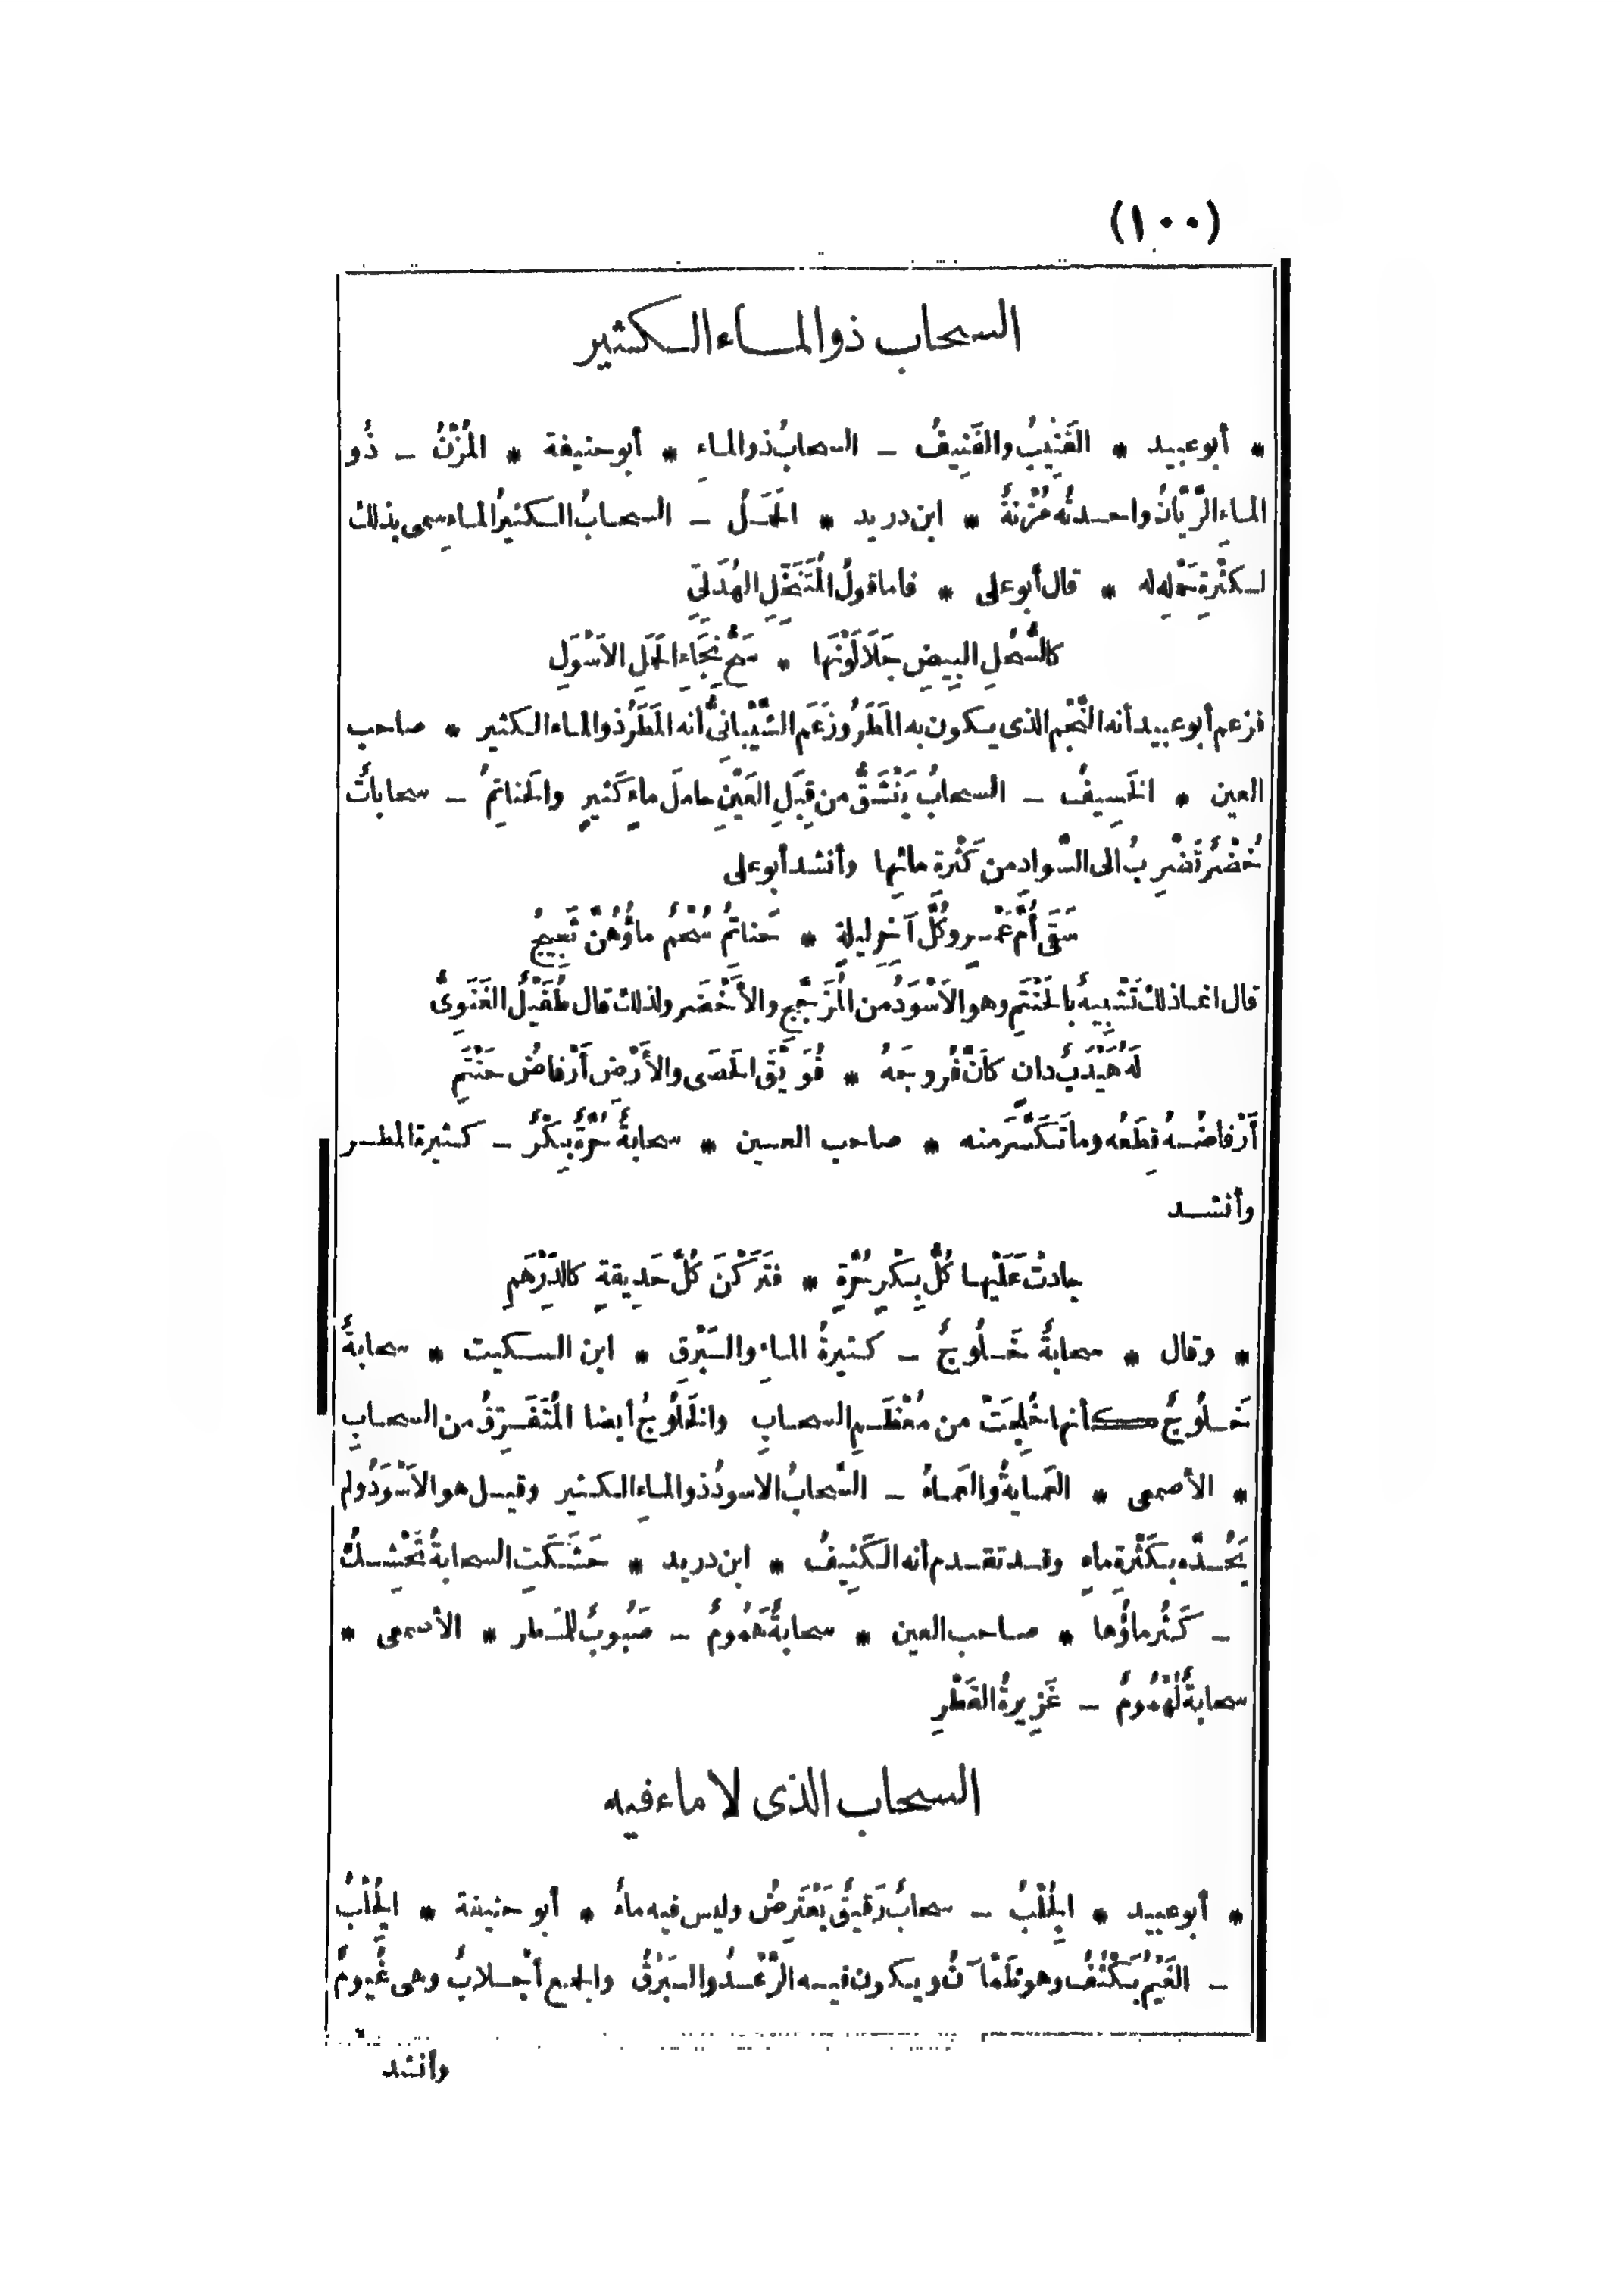 (١٠٠)
السحاب ذو الماء الكثير
* أبو عبيد * القَنِيبُ والقَنِيفُ – السحابُ ذو الماءِ * أبو حنيفة * المُزْنُ – ذُو
الماءِ الرَّيَّانُ واحدتُه مُزْنةٌ * ابن دريد * الحَمَلُ – السحابُ الكثيرُ الماءِ سمى بذلك
لكثْرةِ حَمْلِه له * قال أبو على * فاما قولُ المُتَنَخِّلِ الهُذَلىِّ
كالسُّحُلِ البِيضِ جَلَا لَوْنَها * سَحُّ نِجَاءِ الحَمَلِ الاَسْوَلِ
فزعم أبو عبيد أنه النَّجْم الذى يكون به المَطَرُ وزَعَم الشَّيْبانىُّ أنه المَطَرُ ذو الماء الكثير * صاحب
العين * الخَسِيفُ – السحابُ يَنْشَقُّ من قِبَلِ العَيْنِ حاملَ ماءٍ كَثيرٍ والحَناتِمُ – سحاباتٌ
خُضْرٌ تَضْرِبُ الى السَّواد من كَثْرة مائِها وأنشد أبو على
سَقَى أُمَّ عَمْرٍو كُلَّ آخِرِ ليلةٍ * حَناتمُ سُحْمٌ ماؤُهُنَّ ثَجِيجُ
قال انما ذلك تَشْبِيهٌ بالحَنْتَمِ وهو الاَسْوَدُ من المُزَجَّجِ والأَخْضَر ولذلك قال طُفَيْلُ الغَنَوِىُّ
لَهُ هَيْدَبٌ دانٍ كَانَّ فُروجَهُ * فُوَيْقَ الحَصَى والأَرْضِ أَرْفاضُ حَنْتَمِ
أَرْفاضُه قِطَعُه وما تَكَسَّرَ منه * صاحب العين * سحابةٌ حُرَّةٌ بِكْرٌ – كثيرة المطر
وأنشد
جادتْ عَلَيْها كُلُّ بِكْرٍ حُرَّةٍ * فتَرَكْنَ كُلَّ حَدِيقةٍ كالدِّرْهَمِ
* وقال * سحابةٌ خَلُوجٌ – كثيرةُ الماءِ والبَرْقِ * ابن السكيت * سحابةٌ
خَلُوجٌ كأنها خُلِجَتْ من مُعْظَمِ السحابِ والخَلُوجُ أيضا المُتَفَرِّقُ من السحابِ
* الأصمعى * العَمايةُ والعَماءُ – السَّحابُ الاسودُ ذو الماءِ الكثير وقيل هو الاَسْوَدُ ولم
يَحُدَّه بكَثْرةِ ماءٍ وقد تقدم أنه الكَثِيفُ * ابن دريد * حَشَكَتِ السحابةُ تَحْشِكُ
– كَثُر ماؤُها * صاحب العين * سحابةٌ هَمُومٌ – صَبُوبٌ للمَطر * الأصمعى *
سحابةٌ لُهْمُومٌ – غَزِيرةُ القَطْرِ
السحاب الذى لا ماء فيه
* أبو عبيد * الجِلْبُ – سحابٌ رَقيقٌ يَعْتَرِضُ وليس فيه ماءٌ * أبو حنيفة * الجُلْبُ
– الغَيْمُ يَكْثُفُ وهو ظَمْآنُ ويكون فيه الرَّعْدُ والبَرْقُ والجمع أَجْلابٌ وهى غُيومٌ
وأنشد